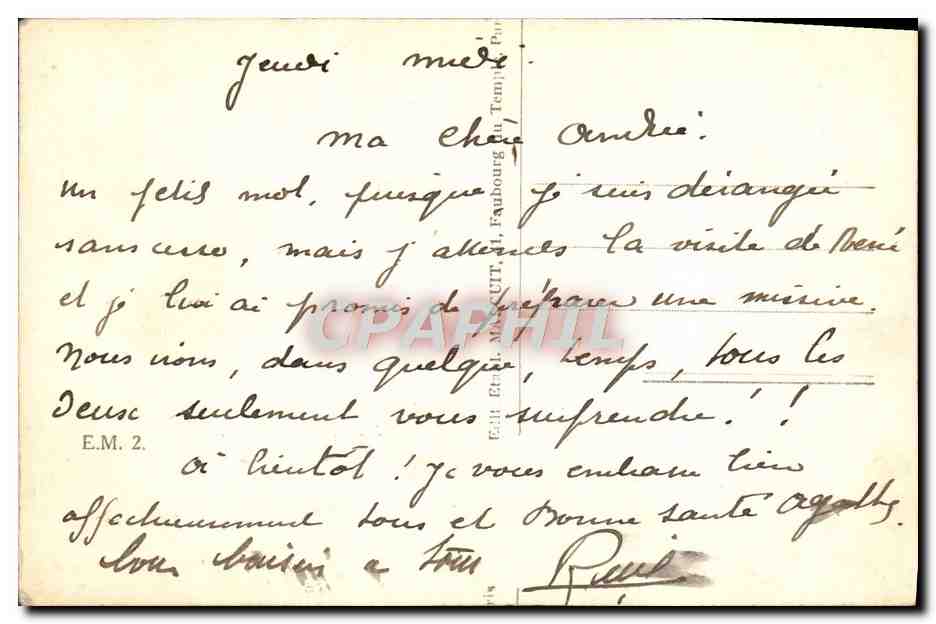 Jeudi midi.
Ma chère Andrée.
Un petit mot, puisque je suis dérangée
sans cesse, mais j'attends la visite de René
et je lui ai promis de préparer une missive.
Nous irons, dans quelque, temps, tous les
deux seulement vous surprendre ! !
E.M. 2.
à bientôt ! Je vous embrasse bien
affectueusement tous et Bonne santé Agathe.
bons baisers a tous René
Edit Etabl. MARQUIT, Faubourg du Temple, Paris
CPAPHIL